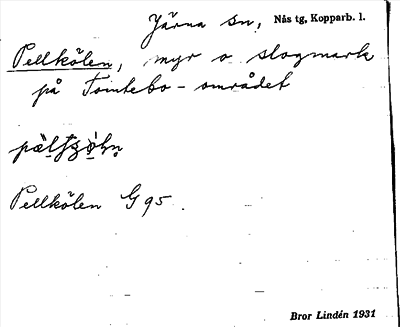 Järna sn, Nås tg, Kopparb. l.
Pellkölen, myr o slogmark
på Tomtebo-området
Pellkölen G 95.
Bror Lindén 1931